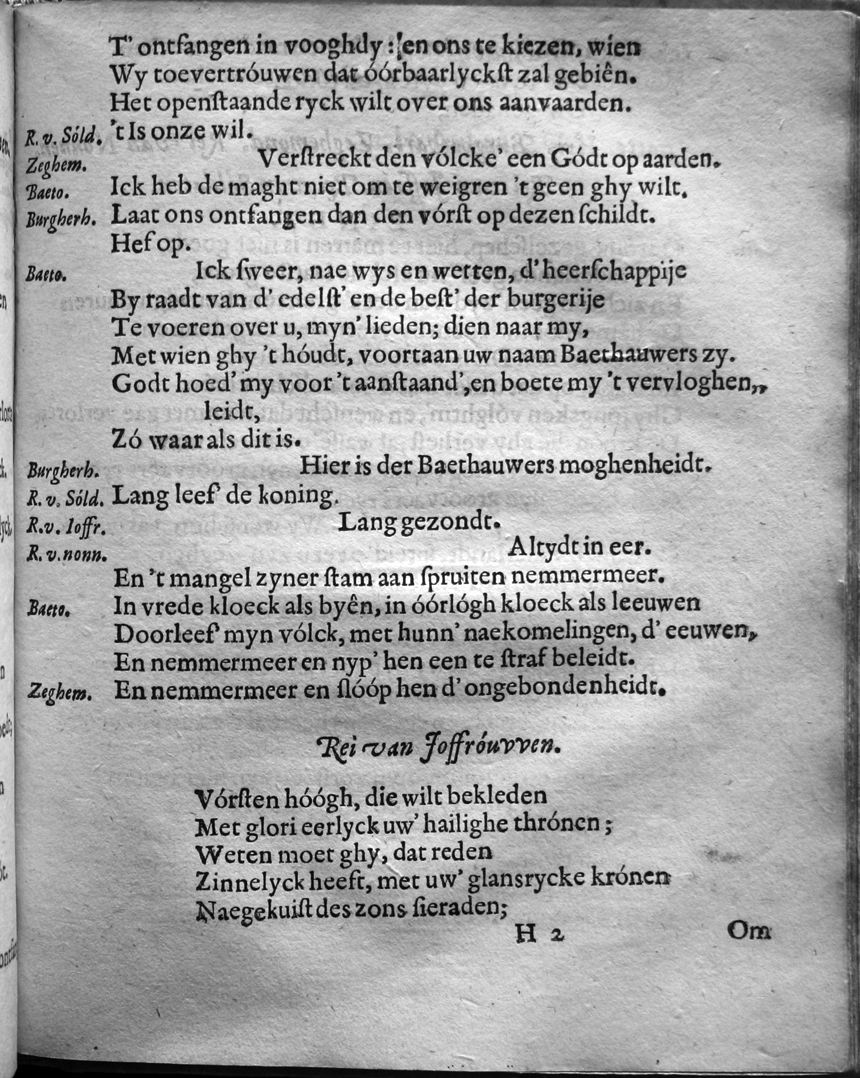 T' ontfangen in vooghdy : en ons te kiezen, wien
Wy toevertróuwen dat óórbaarlyckſt zal gebiên.
Het openſtaande ryck wilt over ons aanvaarden.
R. v. Sóld. 't Is onze wil.
Zeghem. Verſtreckt den vólcke' een Gódt op aarden.
Baeto. Ick heb de maght niet om te weigren 't geen ghy wilt.
Burgherh. Laat ons ontfangen dan den vórſt op dezen ſchildt.
Hef op.
Baeto. Ick ſweer, nae wys en wetten, d' heerſchappije
By raadt van d' edelſt' en de beſt' der burgerije
Te voeren over u, myn' lieden; dien naar my,
Met wien ghy 't hóudt, voortaan uw naam Baethauwers zy.
Godt hoed' my voor 't aanſtaand', en boete my 't vervloghen,,
leidt,
Zó waar als dit is.
Burgherh. Hier is der Baethauwers moghenheidt.
R. v. Sóld. Lang leef' de koning.
R. v. Ioffr. Lang gezondt.
R. v. nonn. Altydt in eer.
En 't mangel zyner ſtam aan ſpruiten nemmermeer.
Baeto. In vrede kloeck als byên, in óórlógh kloeck als leeuwen
Doorleef' myn vólck, met hunn' naekomelingen, d' eeuwen,
En nemmermeer en nyp' hen een te ſtraf beleidt.
Zeghem. En nemmermeer en ſlóóp hen d' ongebondenheidt.
Rei van Joffróuvven.
Vórſten hóógh, die wilt bekleden
Met glori eerlyck uw' hailighe thrónen;
Weten moet ghy, dat reden
Zinnelyck heeft, met uw' glansrycke krónen
Naegekuiſt des zons ſieraden;
H 2 Om